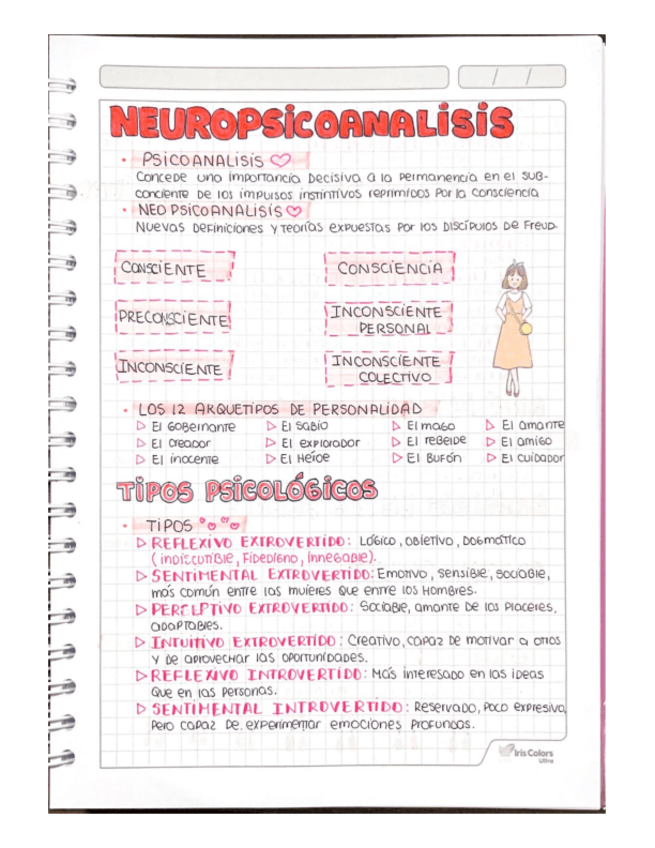 NEUROPSICOANALISIS
• PSICOANALISIS
CONCEDE UNA IMPORTANCIA DECISIVA A LA PERMANENCIA EN EL SUB-
CONCIENTE DE LOS IMPULSOS INSTINTIVOS REPRIMIDOS POR LA CONSCIENCIA
• NEO PSICOANALISIS
NUEVAS DEFINICIONES Y TEORÍAS EXPUESTAS POR LOS DISCÍPULOS DE FREUD.
CONSCIENTE
CONSCIENCIA
PRECONSCIENTE
INCONSCIENTE
PERSONAL
INCONSCIENTE
INCONSCIENTE
COLECTIVO
• LOS 12 ARQUETIPOS DE PERSONALIDAD
▷ El GOBERNANTE ▷ El SABIO ▷ El MAGO ▷ El AMANTE
▷ El CREADOR ▷ El EXPLORADOR ▷ El REBELDE ▷ El AMIGO
▷ El INOCENTE ▷ El HÉROE ▷ El BUFÓN ▷ El CUIDADOR
TIPOS PSICOLÓGICOS
• TIPOS
▷ REFLEXIVO EXTROVERTIDO: LÓGICO, OBJETIVO, DOGMÁTICO
(INDISCUTIBLE, FIDEDIGNO, INNEGABLE).
▷ SENTIMENTAL EXTROVERTIDO: EMOTIVO, SENSIBLE, SOCIABLE,
MÁS COMÚN ENTRE LAS MUJERES QUE ENTRE LOS HOMBRES.
▷ PERCEPTIVO EXTROVERTIDO: SOCIABLE, AMANTE DE LOS PLACERES,
ADAPTABLES.
▷ INTUITIVO EXTROVERTIDO: CREATIVO, CAPAZ DE MOTIVAR A OTROS
Y DE APROVECHAR LAS OPORTUNIDADES.
▷ REFLEXIVO INTROVERTIDO: MÁS INTERESADO EN LAS IDEAS
QUE EN LAS PERSONAS.
▷ SENTIMENTAL INTROVERTIDO: RESERVADO, POCO EXPRESIVO,
PERO CAPAZ DE EXPERIMENTAR EMOCIONES PROFUNDAS.
Iris Colors
Ultra